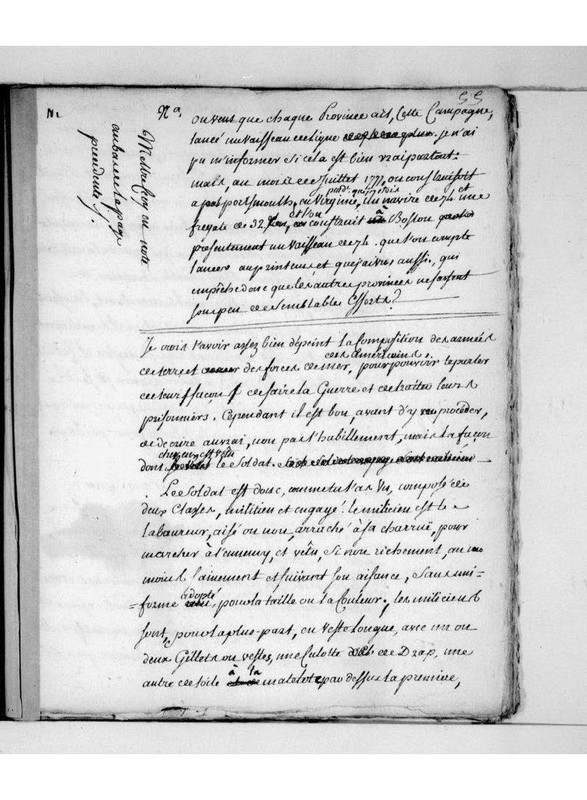 55
N1
Nª
Mettre ceci en note
au bas de la page
précédente.
on veut que chaque Province ait, Cette Campagne,
lancé un vaisseau de ligne. je n'ai
pu m'informer si cela est bien vrai partout:
mais au mois de Juillet 1777, on construisoit
à portsmouth, en Virginie, un navire de 74 et une
frégate de 32, et l'on construit à Boston
présentement un vaisseau de 74 que l'on compte
lancer au printems et que j'ai vu aussi. qui
empêche donc que les autres provinces ne fassent
sous peu de semblables Efforts?
Je crois t'avoir assez bien dépeint la Composition des armées
des américains,
de terre et des forces de mer, pour pouvoir te parler
de leur façon de faire la Guerre et de traiter leurs
prisonniers. Cependant il est bon, avant d'y procéder,
de décrire au vrai, non pas l'habillement, mais la façon
dont chez eux est vêtu le Soldat.
Le Soldat est donc, comme tu l'as vu, composé de
deux Classes, milicien et engagé. le milicien est le
laboureur, aisé ou non, arraché à sa charruë, pour
marcher à l'ennemy, et vêtu, si non richement, au
moins sainement et suivant son aisance, sans uni-
=forme adopté, pour la taille ou la Couleur. les miliciens
sont, pour la plus-part, en veste longue, avec un ou
deux Gillets ou vestes, une Culotte de Drap, une
autre de toile à la matelote par dessus la première,